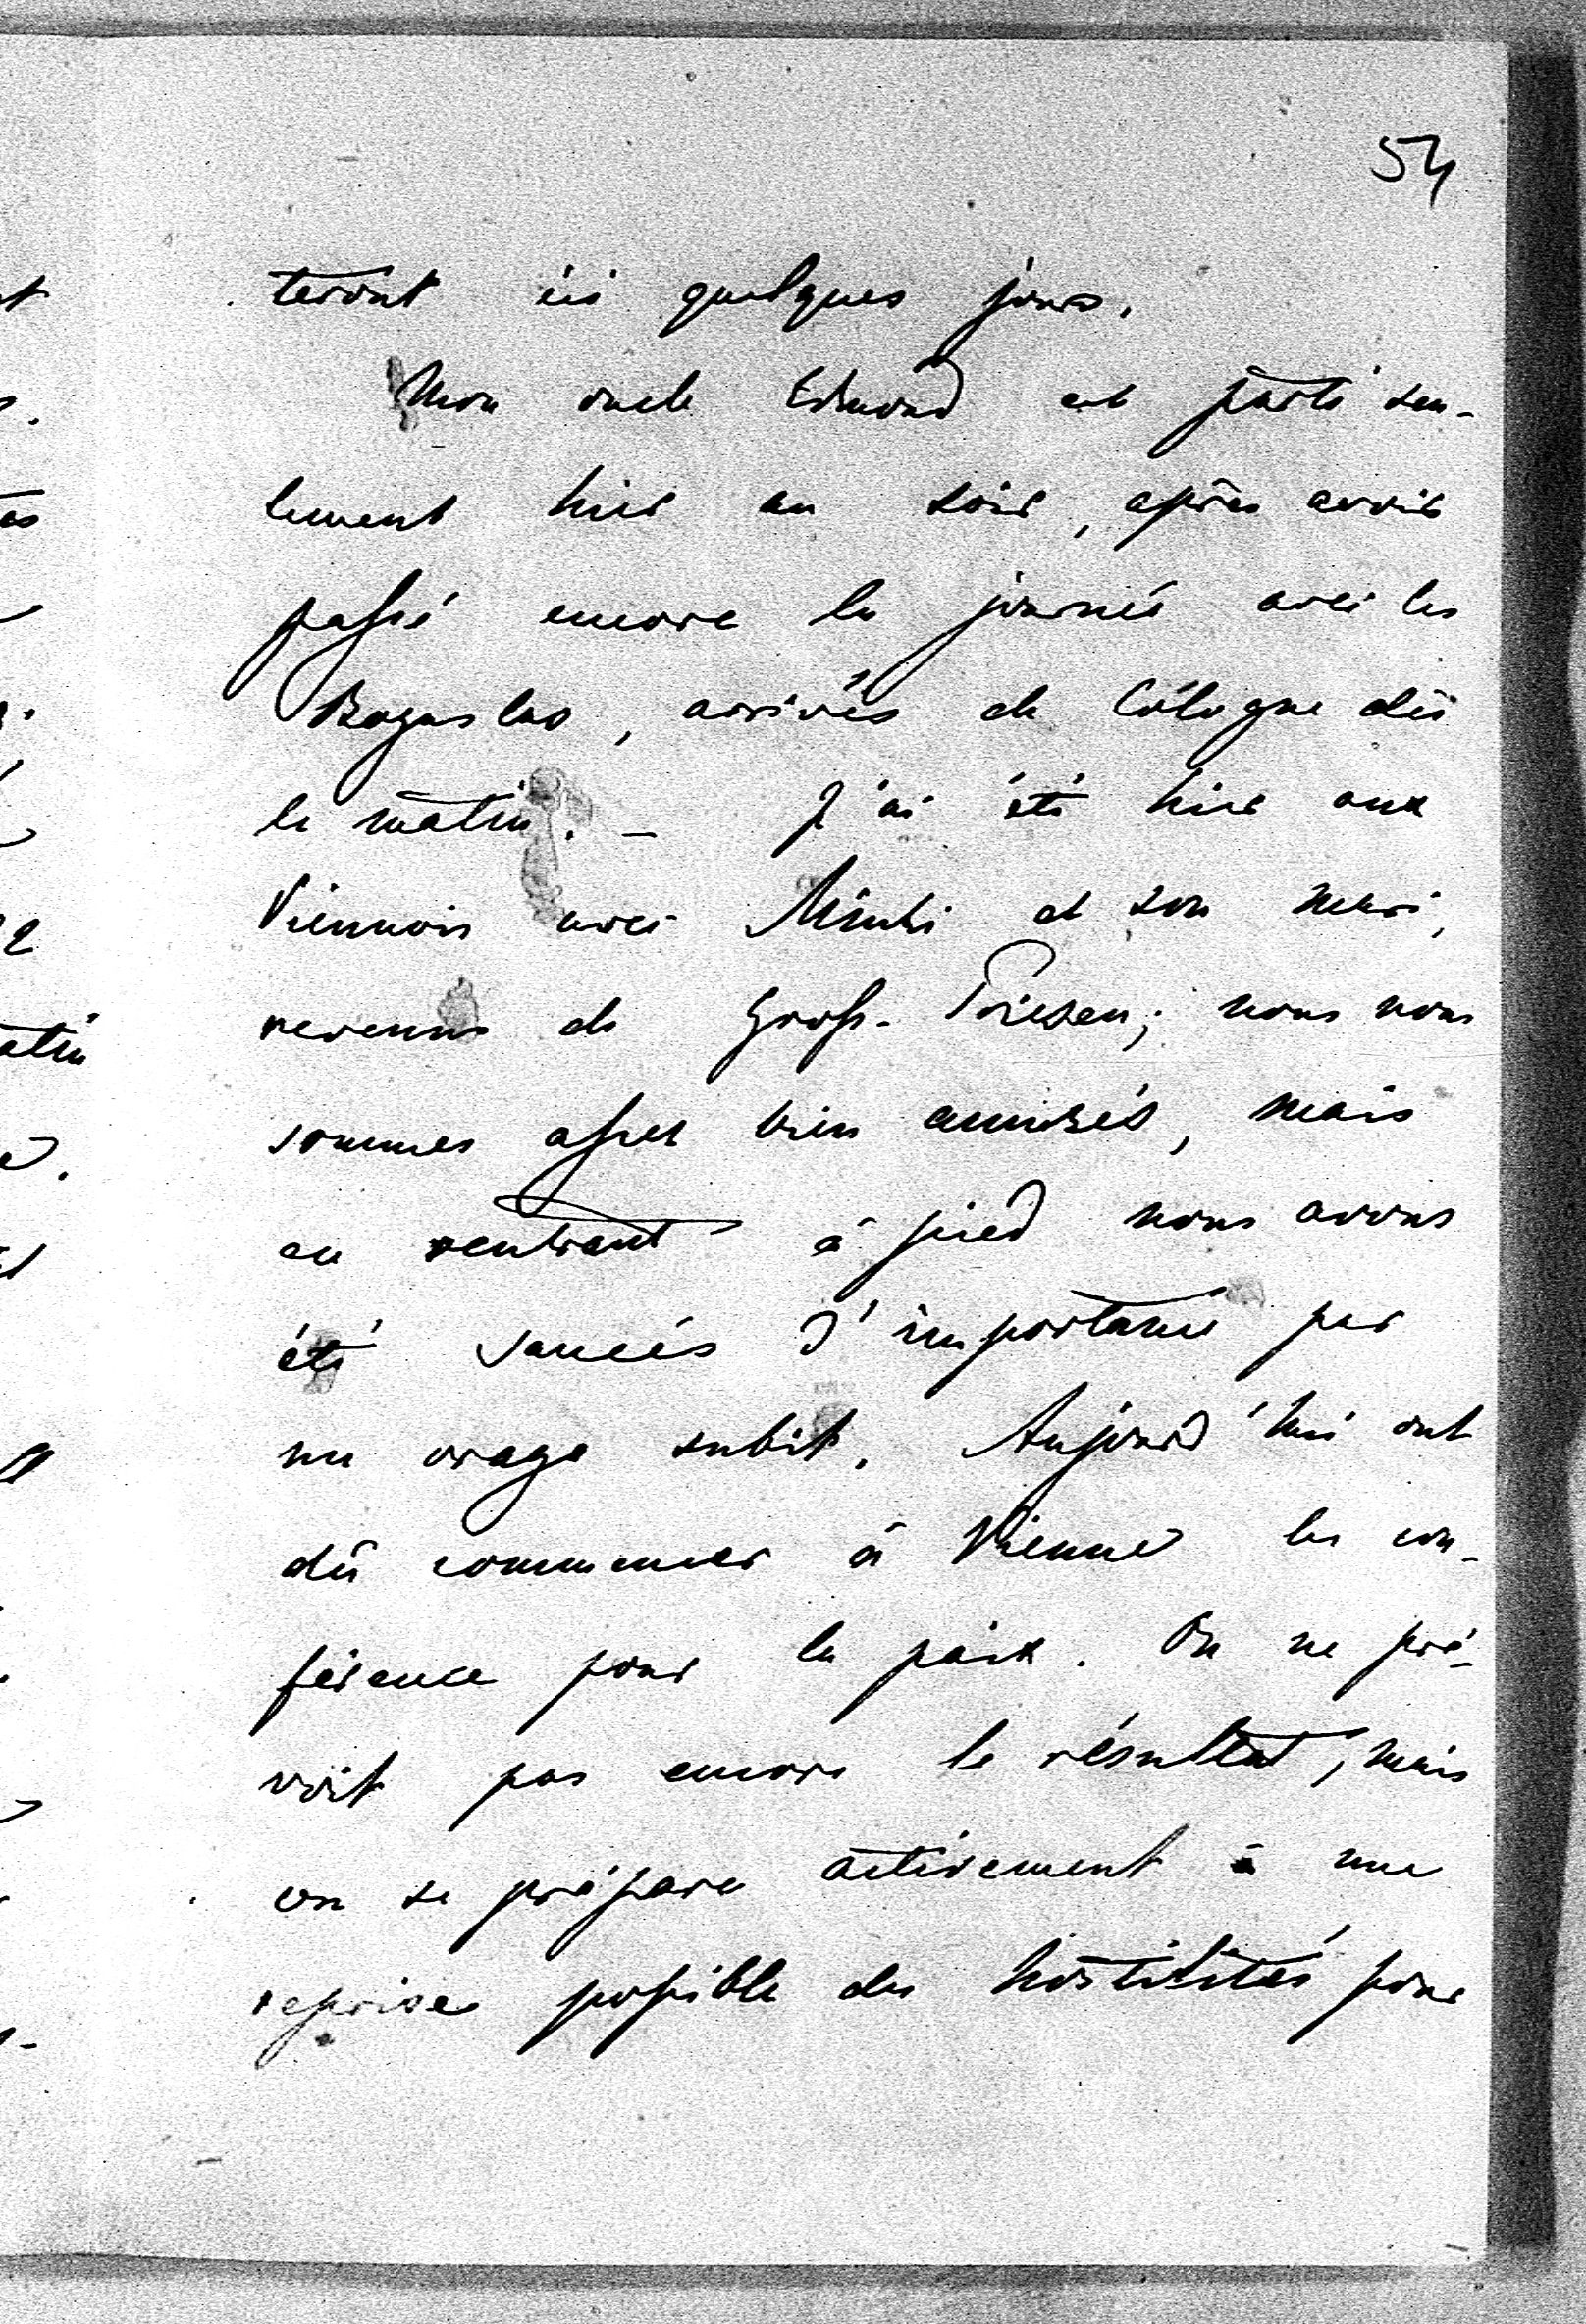 54
teront ici quelques jours.
Mon oncle Edmond est parti seu-
lement hier au soir, après avoir
passé encore la journée avec les
Boguslas, arrivés de Cologne dès
le matin. — J'ai été hier aux
Viennois avec Mimi et son mari,
revenus de Gross-Priesen; nous nous
sommes assez bien amusés, mais
en rentrant à pied nous avons
été saucés d'importance par
un orage subit. Aujourd'hui ont
dû commencer à Vienne les con-
férence pour la paix. On ne pré-
voit pas encore le résultat, mais
on se prépare activement à une
reprise possible des hostilités pour